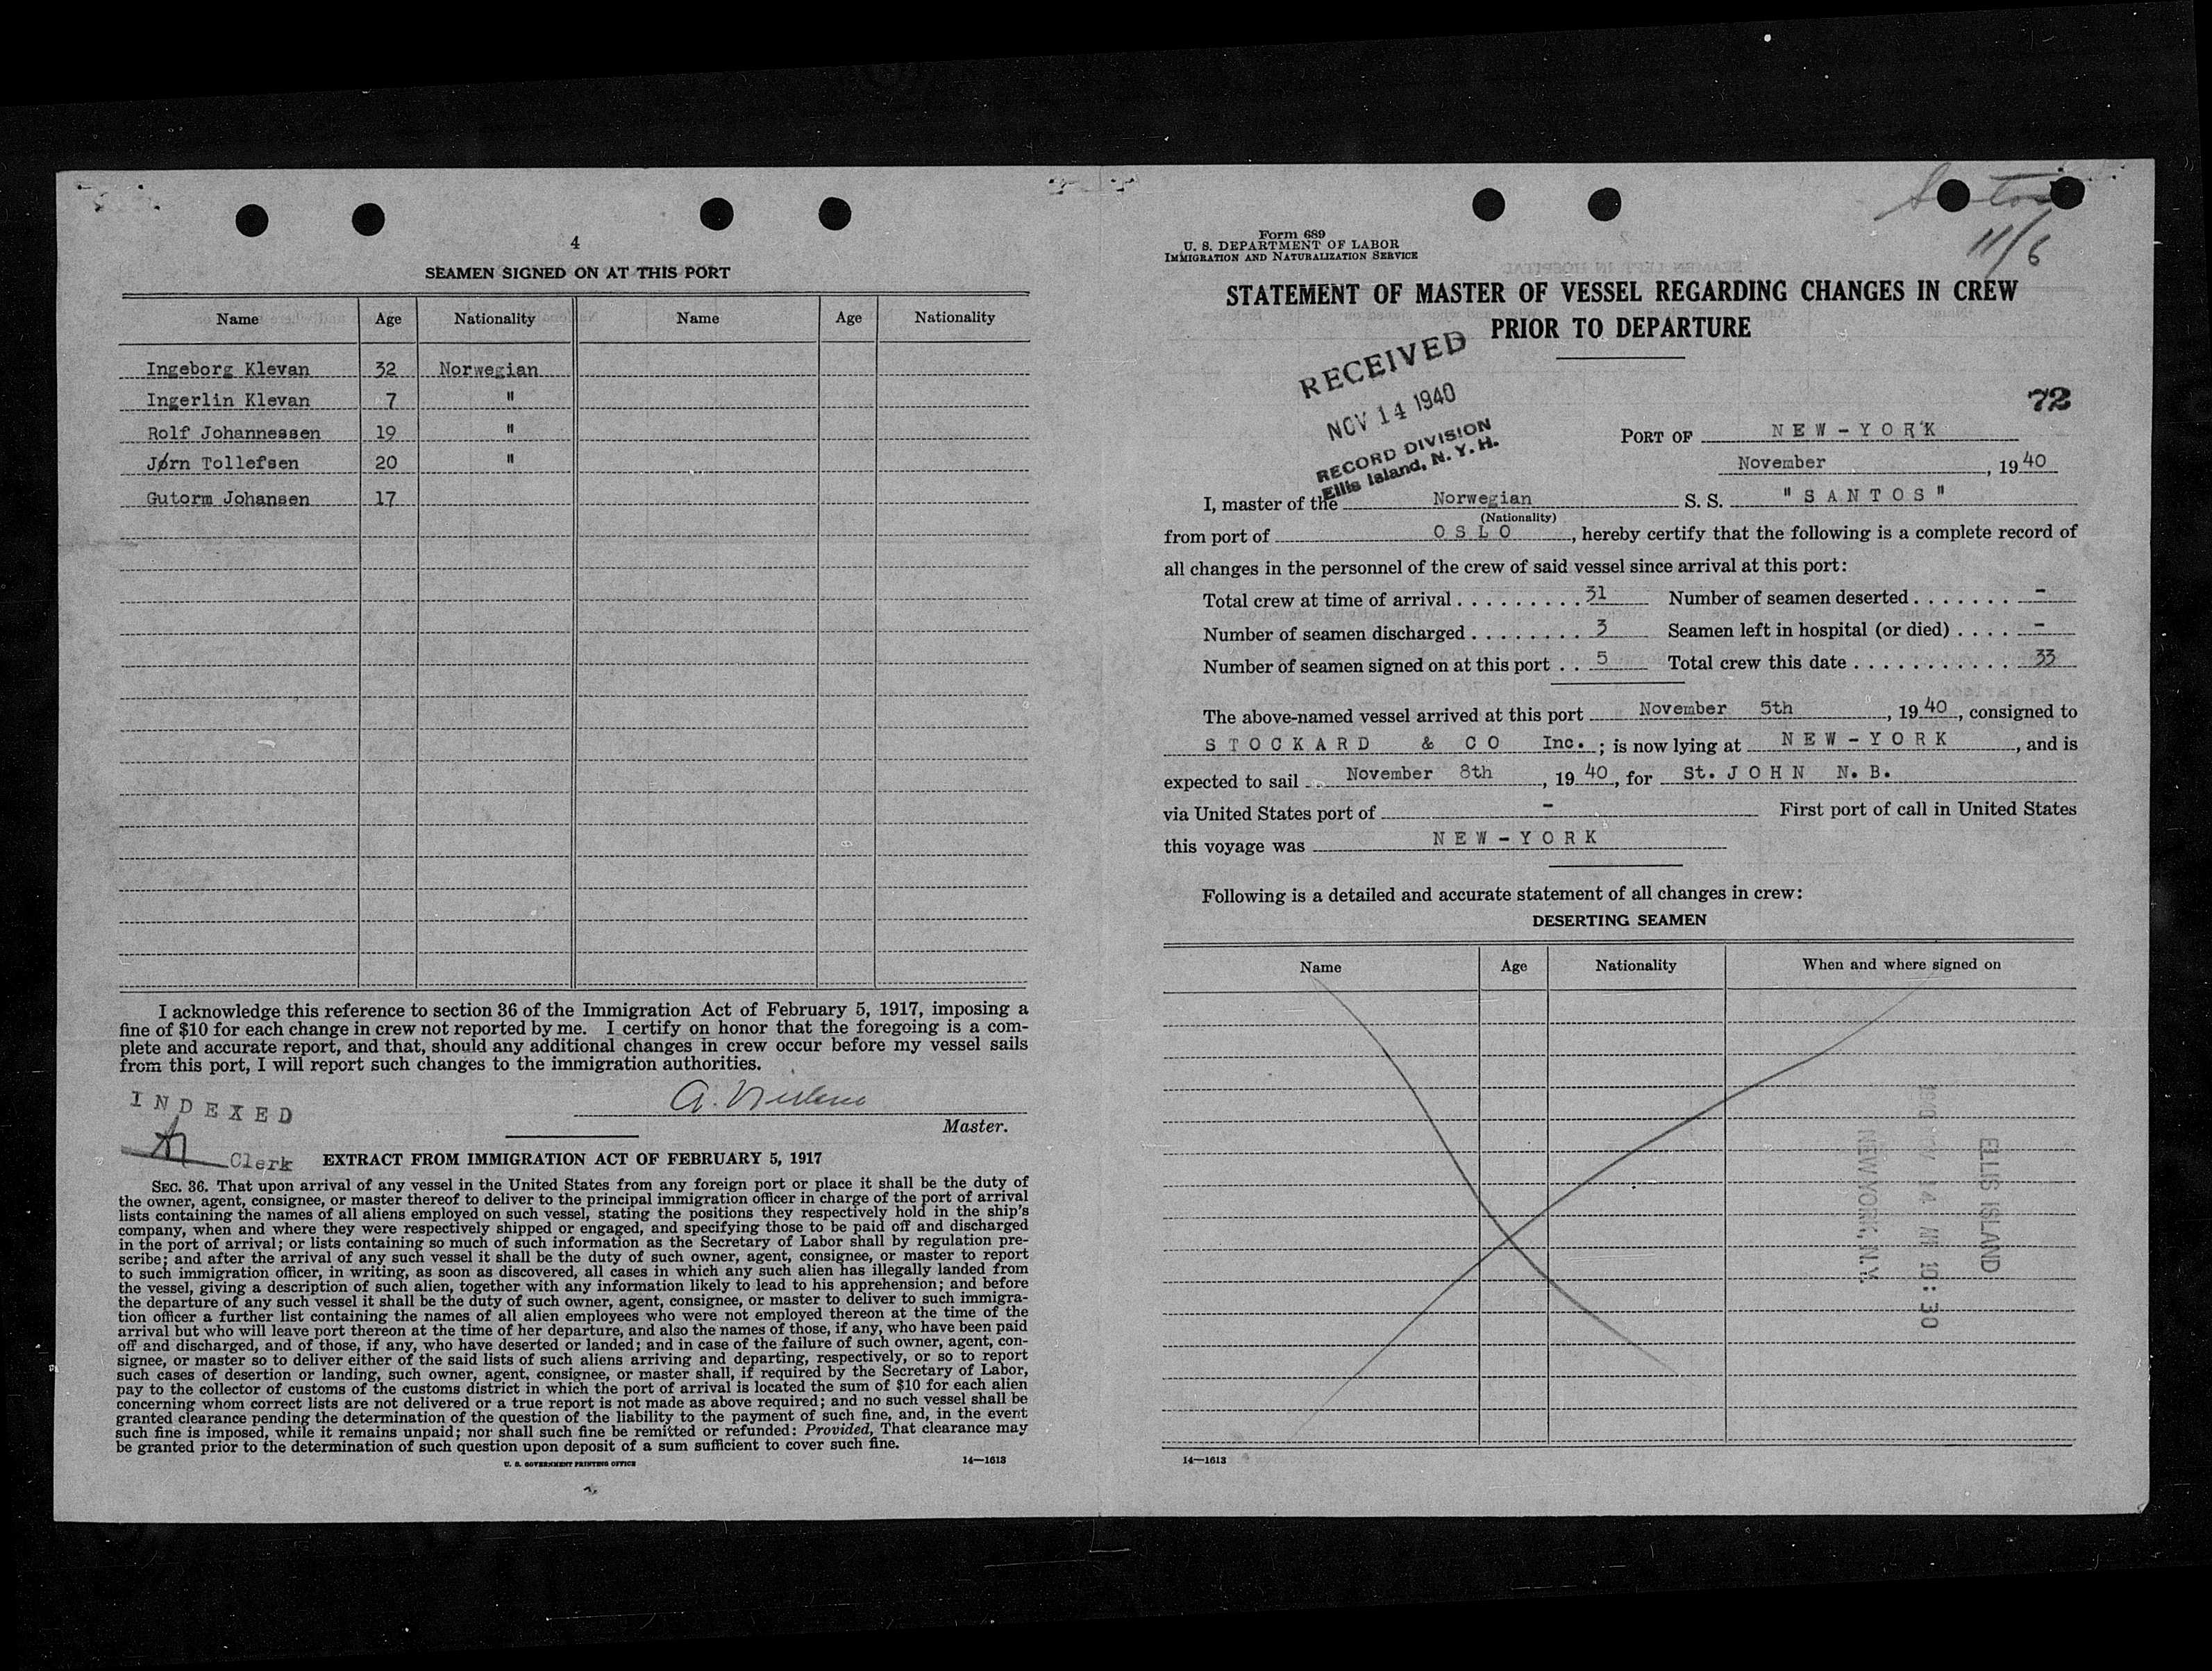 4
SEAMEN SIGNED ON AT THIS PORT
Name Age Nationality Name Age Nationality
Ingeborg Klevan 32 Norwegian
Ingerlin Klevan 7 "
Rolf Johannessen 19 "
Jørn Tollefsen 20 "
Gutorm Johansen 17
I acknowledge this reference to section 36 of the Immigration Act of February 5, 1917, imposing a
fine of $10 for each change in crew not reported by me. I certify on honor that the foregoing is a com-
plete and accurate report, and that, should any additional changes in crew occur before my vessel sails
from this port, I will report such changes to the immigration authorities.
INDEXED
A.
Master.
Clerk
EXTRACT FROM IMMIGRATION ACT OF FEBRUARY 5, 1917
SEC. 36. That upon arrival of any vessel in the United States from any foreign port or place it shall be the duty of
the owner, agent, consignee, or master thereof to deliver to the principal immigration officer in charge of the port of arrival
lists containing the names of all aliens employed on such vessel, stating the positions they respectively hold in the ship's
company, when and where they were respectively shipped or engaged, and specifying those to be paid off and discharged
in the port of arrival; or lists containing so much of such information as the Secretary of Labor shall by regulation pre-
scribe; and after the arrival of any such vessel it shall be the duty of such owner, agent, consignee, or master to report
to such immigration officer, in writing, as soon as discovered, all cases in which any such alien has illegally landed from
the vessel, giving a description of such alien, together with any information likely to lead to his apprehension; and before
the departure of any such vessel it shall be the duty of such owner, agent, consignee, or master to deliver to such immigra-
tion officer a further list containing the names of all alien employees who were not employed thereon at the time of the
arrival but who will leave port thereon at the time of her departure, and also the names of those, if any, who have been paid
off and discharged, and of those, if any, who have deserted or landed; and in case of the failure of such owner, agent, con-
signee, or master so to deliver either of the said lists of such aliens arriving and departing, respectively, or so to report
such cases of desertion or landing, such owner, agent, consignee, or master shall, if required by the Secretary of Labor,
pay to the collector of customs of the customs district in which the port of arrival is located the sum of $10 for each alien
concerning whom correct lists are not delivered or a true report is not made as above required; and no such vessel shall be
granted clearance pending the determination of the question of the liability to the payment of such fine, and, in the event
such fine is imposed, while it remains unpaid; nor shall such fine be remitted or refunded: Provided, That clearance may
be granted prior to the determination of such question upon deposit of a sum sufficient to cover such fine.
U. S. GOVERNMENT PRINTING OFFICE 14—1613
11/6
Form 689
U. S. DEPARTMENT OF LABOR
IMMIGRATION AND NATURALIZATION SERVICE
STATEMENT OF MASTER OF VESSEL REGARDING CHANGES IN CREW
PRIOR TO DEPARTURE
RECEIVED
NOV 14 1940
RECORD DIVISION
Ellis Island, N. Y. H.
72
PORT OF NEW-YORK
November, 1940
I, master of the Norwegian S. S. "SANTOS"
(Nationality)
from port of OSLO, hereby certify that the following is a complete record of
all changes in the personnel of the crew of said vessel since arrival at this port:
Total crew at time of arrival . . . . . . . . . 31 Number of seamen deserted . . . . . . . -
Number of seamen discharged . . . . . . . . 3 Seamen left in hospital (or died) . . . . -
Number of seamen signed on at this port . . 5 Total crew this date . . . . . . . . . . . . 33
The above-named vessel arrived at this port November 5th, 1940, consigned to
STOCKARD & CO Inc.; is now lying at NEW-YORK, and is
expected to sail November 8th, 1940, for St. JOHN N. B.
via United States port of - First port of call in United States
this voyage was NEW-YORK
Following is a detailed and accurate statement of all changes in crew:
DESERTING SEAMEN
Name Age Nationality When and where signed on
ELLIS ISLAND
14 AM 10:30
NEW YORK, N.Y.
14—1613